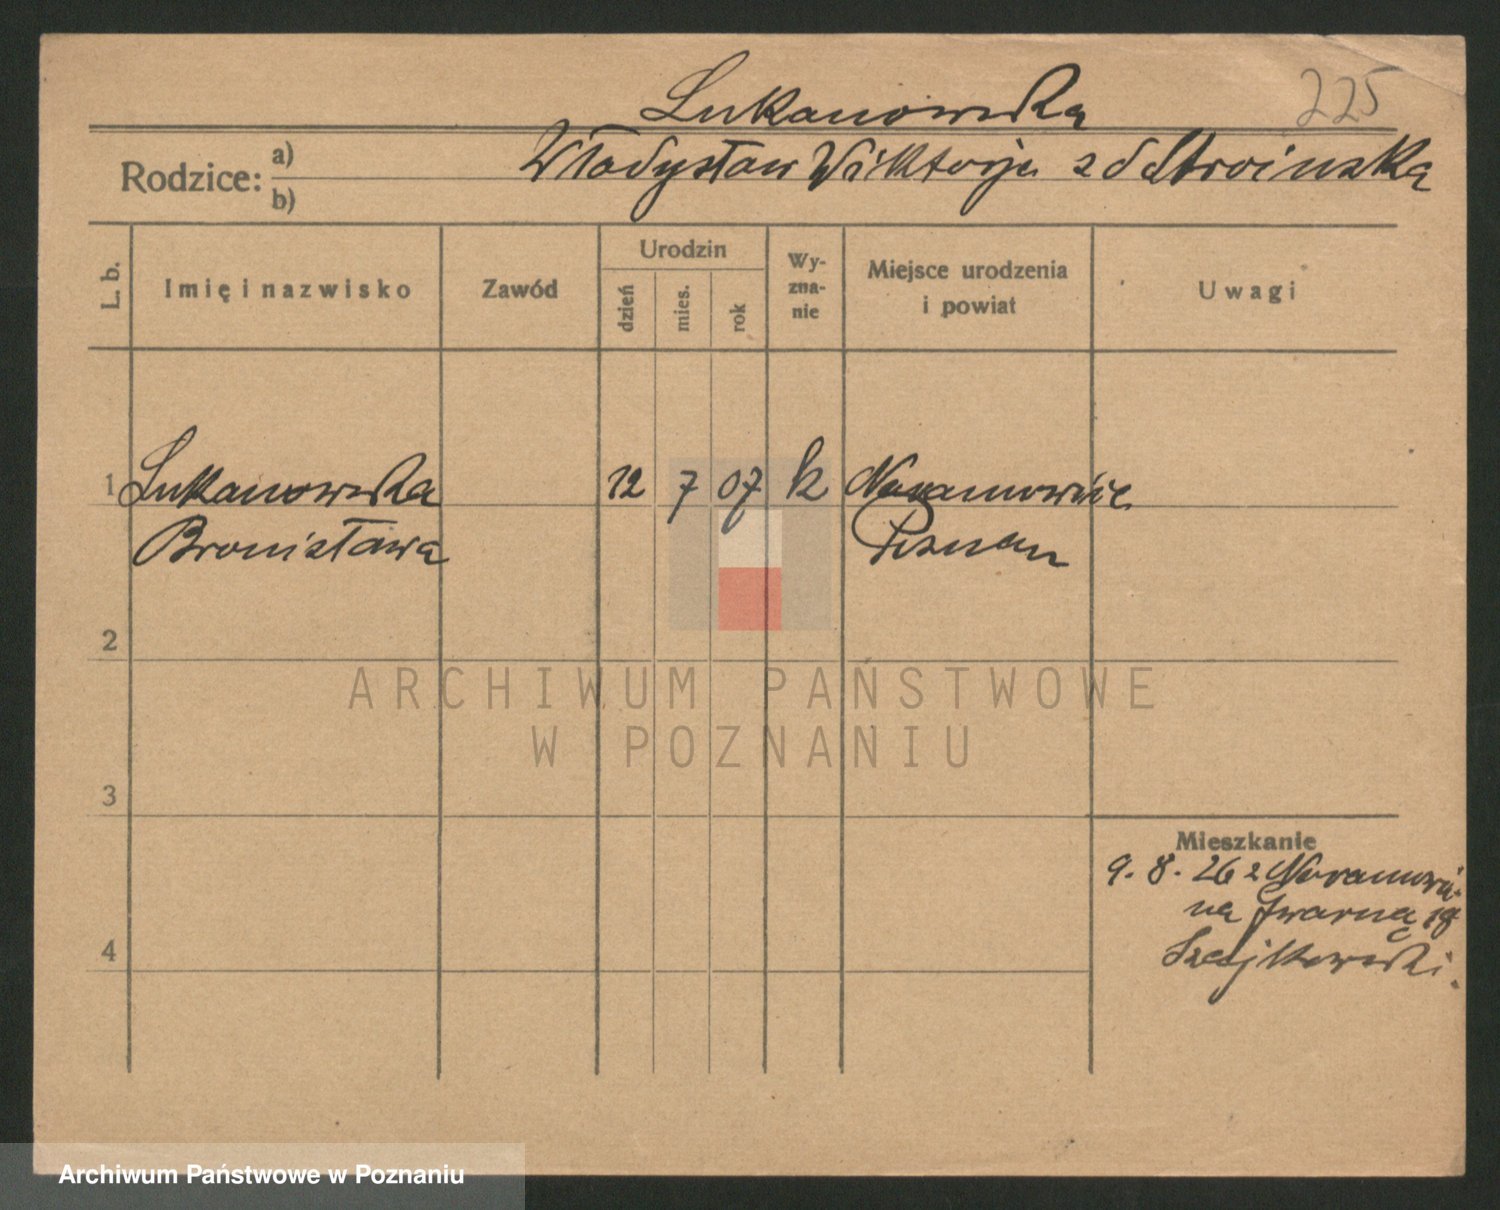 Lukanowska
225
Rodzice: a)
b)
Władysław Wiktorja z d Stroinska
L. b.
Imię i nazwisko
Zawód
Urodzin
dzień
mies.
rok
Wy-
zna-
nie
Miejsce urodzenia
i powiat
Uwagi
1
Lukanowska
Bronisława
12
7
07
k
Naramowice
Poznan
2
3
4
Mieszkanie
9. 8. 26 z Naramowic
na
18
Szajkowski.
ARCHIWUM PAŃSTWOWE
W POZNANIU
Archiwum Państwowe w Poznaniu